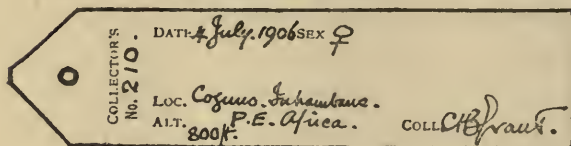 COLLECTOR'S No. 210.
DATE 4 July. 1906 SEX ♀
LOC. Coguno. Inhambane.
ALT. 800ft. P.E. Africa. COLL. CHB Grant.